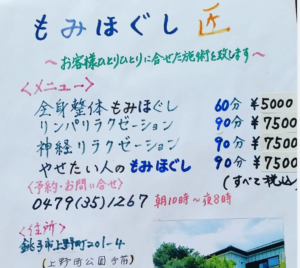 もみほぐし 匠
～お客様ひとりひとりに合せた施術を致します～
＜メニュー＞
全身整体もみほぐし 60分 ¥5000
リンパリラクゼーション 90分 ¥7500
神経リラクゼーション 90分 ¥7500
やせたい人のもみほぐし 90分 ¥7500
(すべて税込)
＜予約・お問い合せ＞
0479(35)1267 朝10時～夜8時
＜住所＞
銚子市上野町201-4
(上野町公園手前)